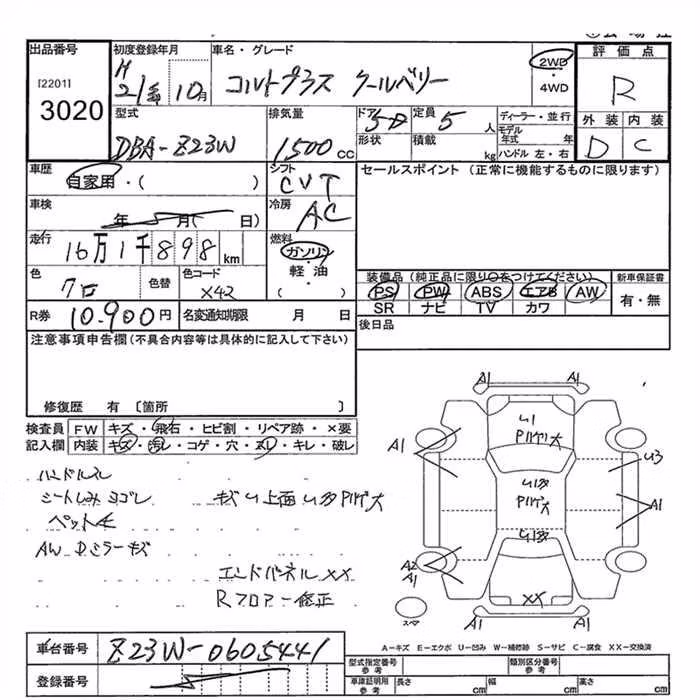 出品番号 初度登録年月 車名・グレード 2WD 評価点
[2201] H 21年 10月 コルトプラス クールベリー ・4WD R
3020 型式 排気量 ドア 定員 ディーラー・並行 外装 内装
DBA-Z23W 1500cc 5D 5人 モデル年式 年 D C
形状 積載 kg ハンドル 左・右
車歴 シフト セールスポイント (正常に機能するものに限ります)
自家用・( ) CVT
車検 冷房
年 月( 日) AC
走行 16万1千898km 燃料
ガソリン
色 色替 色コード 軽油 装備品(純正品に限り○をつけてください) 新車保証書
クロ X42 ( ) PS PW ABS エアB AW 有・無
R券 10.900円 名変通知期限 月 日 SR ナビ TV カワ
注意事項申告欄(不具合内容等は具体的に記入して下さい) 後日品
修復歴 有 〔箇所 〕
検査員 FW キズ・飛石・ヒビ割・リペア跡・×要
記入欄 内装 キズ・汚レ・コゲ・穴・スレ・キレ・破レ
A1 A1
U1
Pハゲ大
A1 U3
ハンドルスレ
シートしみ ヨゴレ キズ U 上面 U多 Pハゲ大
U多
Pハゲ大
A1
ペット毛
AW Dミラーキズ
U多
A2
A1
エンドパネルXX
XX
Rフロアー修正
スペア
A1 A1
A-キズ E-エクボ U-凹み W-補修跡 S-サビ C-腐食 XX-交換済
車台番号 Z23W-0605441
型式指定番号 参考 類別区分番号 参考
登録番号 車庫証明用 参考 長さ cm 幅 cm 高さ cm